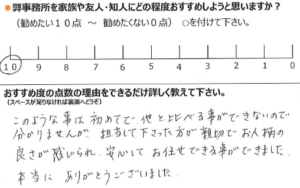 ● 弊事務所を家族や友人・知人にどの程度おすすめしようと思いますか？
(勧めたい１０点 ～ 勧めたくない０点) ○を付けて下さい。
10 9 8 7 6 5 4 3 2 1 0
おすすめ度の点数の理由をできるだけ詳しく教えて下さい。
(スペースが足りなければ裏面へどうぞ)
このような事は初めてで、他と比べる事ができないので
分かりませんが、担当して下さった方が親切でお人柄の
良さが感じられ、安心してお任せできる事ができました。
本当に ありがとうございました。